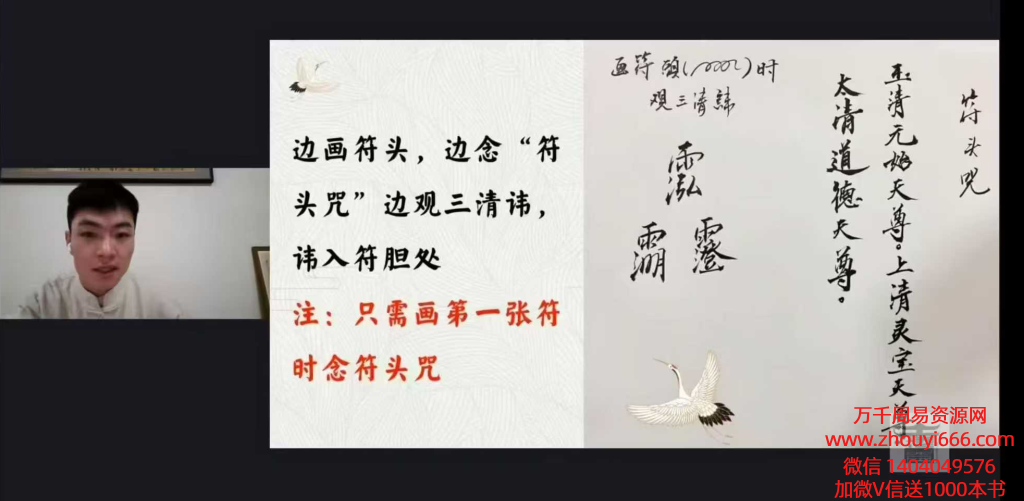 边画符头，边念“符
头咒”边观三清讳，
讳入符胆处
注：只需画第一张符
时念符头咒
画符頭( )时
观三清諱
符头咒
玉清元始天尊。上清灵宝天尊
太清道德天尊。
万千周易资源网
www.zhouyi666.com
微信 1404049576
加微V信送1000本书